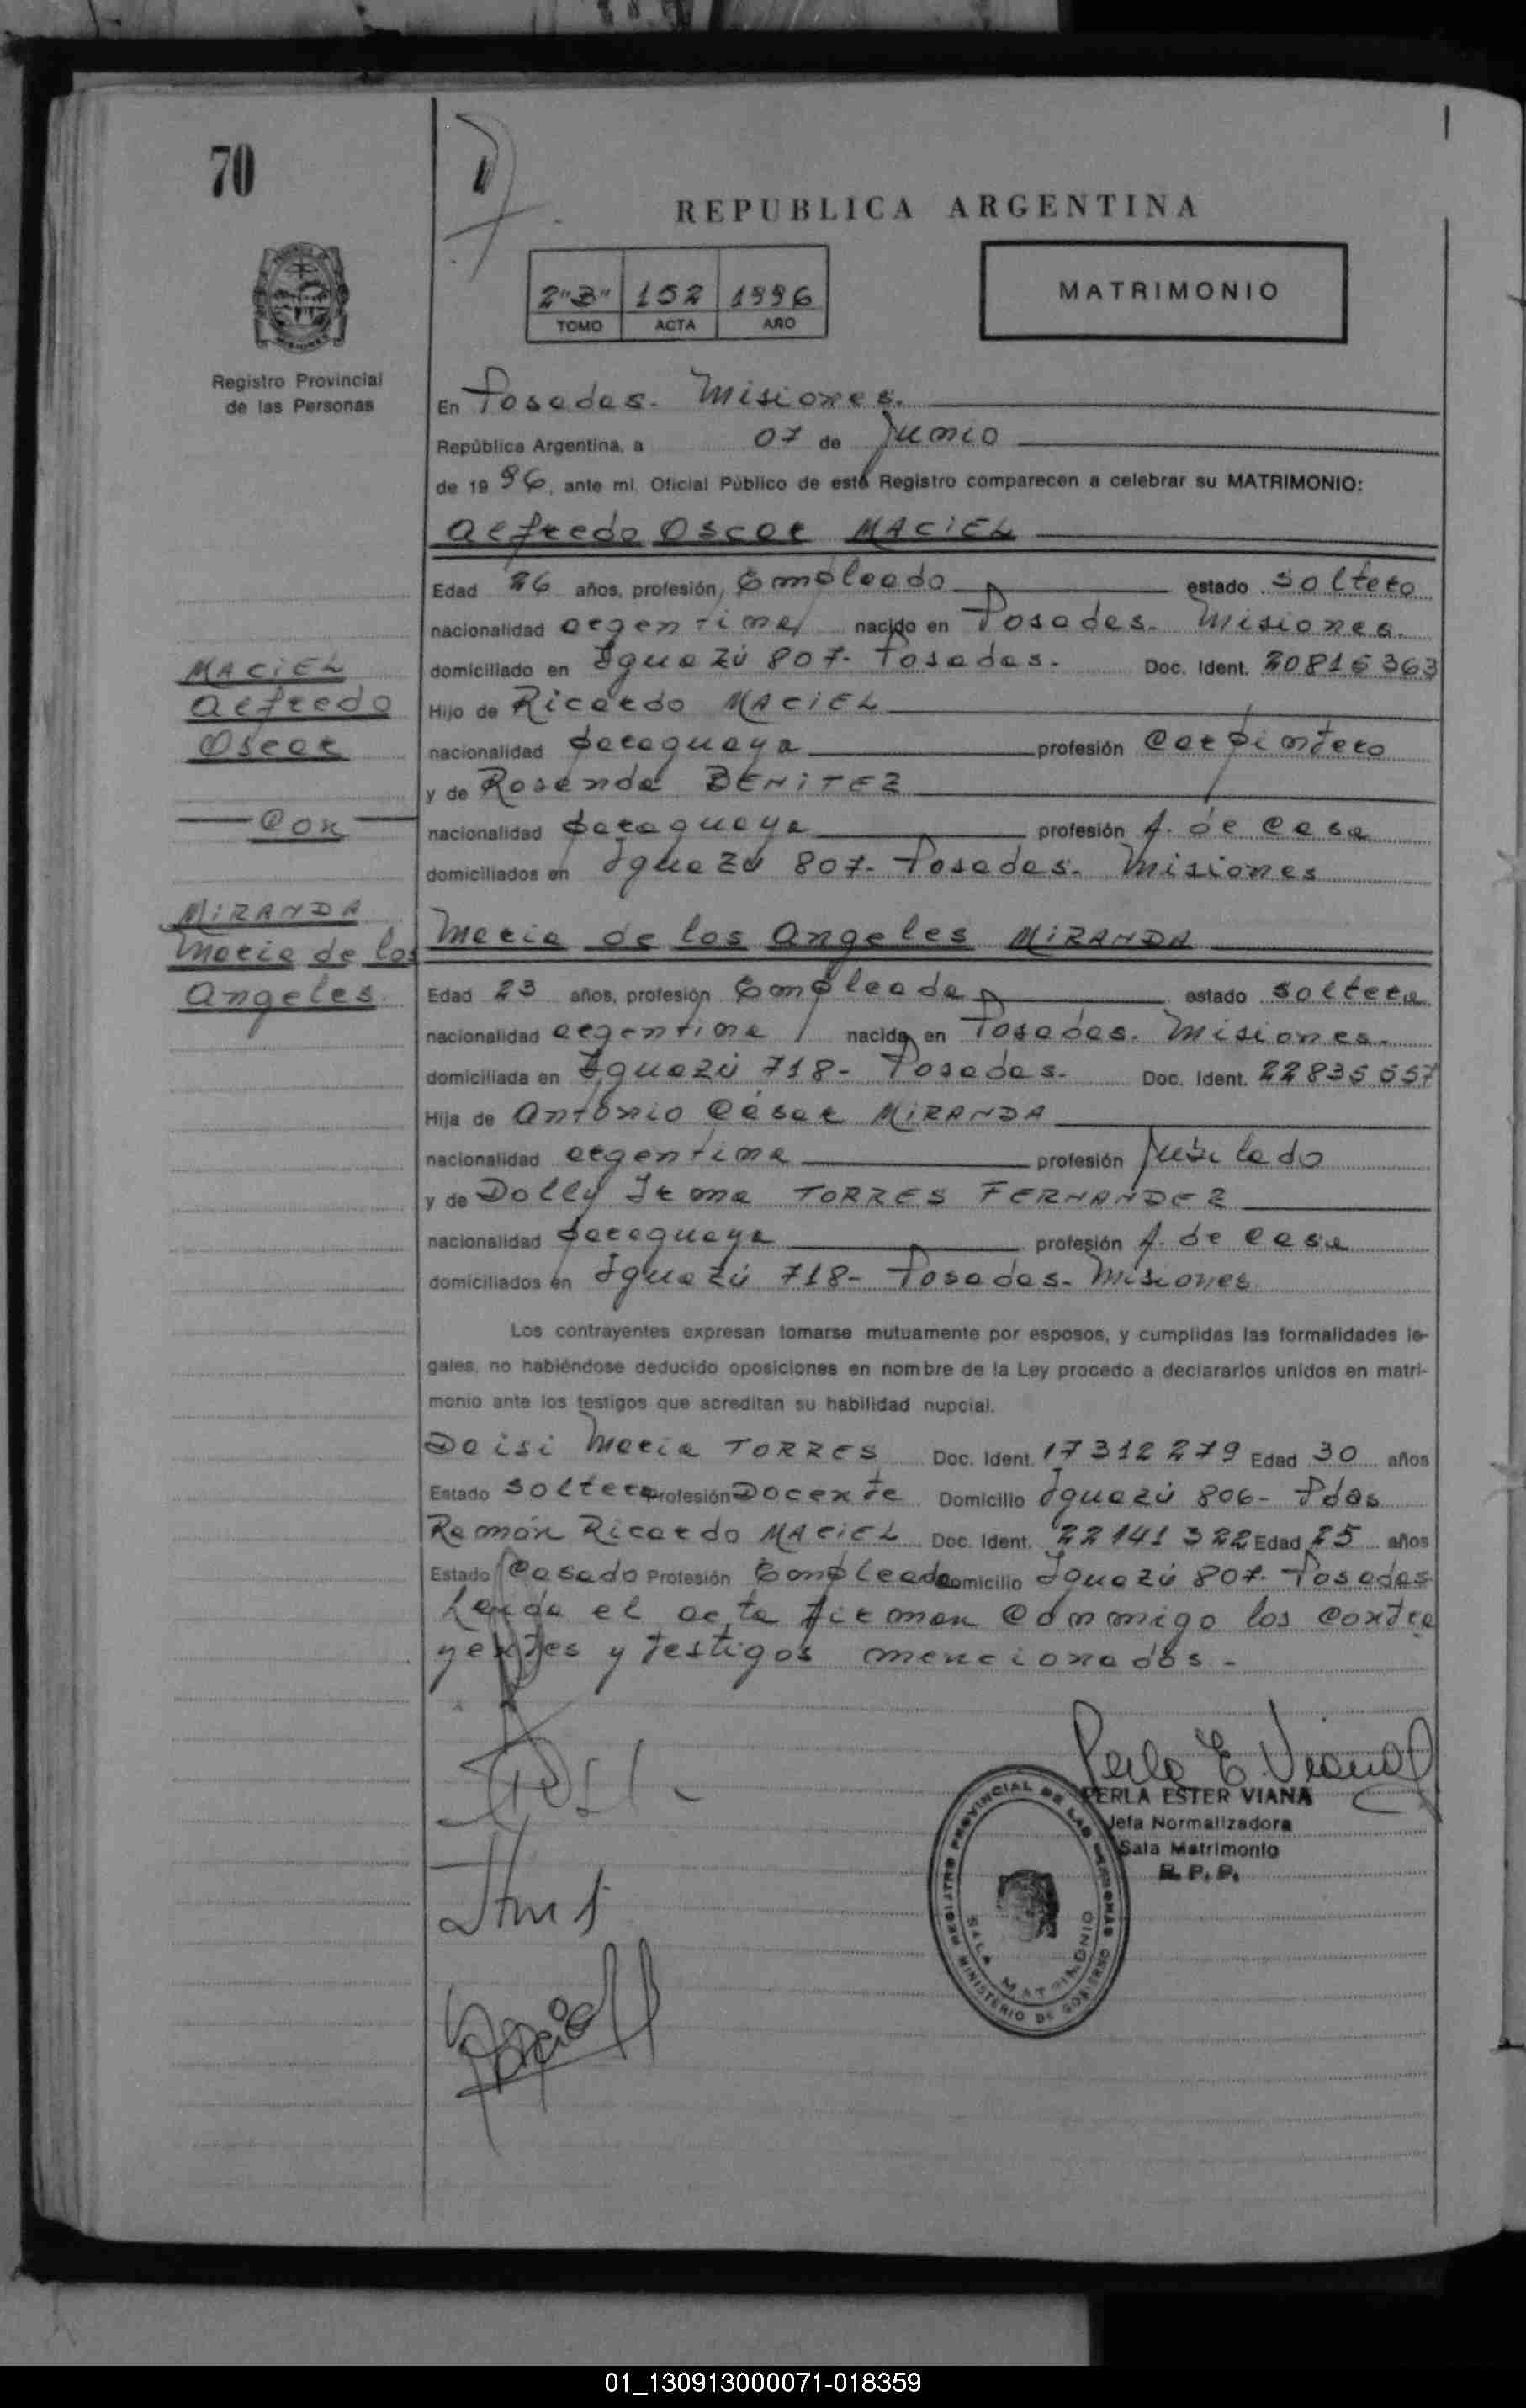 70
REPUBLICA ARGENTINA
2"B" 152 1996
TOMO ACTA AÑO
MATRIMONIO
Registro Provincial
de las Personas
En Posadas. Misiones.
República Argentina, a 07 de Junio
de 1996, ante mí, Oficial Público de este Registro comparecen a celebrar su MATRIMONIO:
Alfredo Oscar MACIEL
Edad 26 años, profesión, Empleado estado soltero
nacionalidad argentina nacido en Posadas. Misiones.
domiciliado en Iguazú 807. Posadas. Doc. Ident. 20815363
Hijo de Ricardo MACIEL
nacionalidad paraguaya profesión Carpintero
y de Rosenda BENITEZ
nacionalidad paraguaya profesión A. de casa
domiciliados en Iguazú 807. Posadas. Misiones
MACIEL
Alfredo
Oscar
Con
MIRANDA
Maria de los
Angeles.
Maria de los Angeles MIRANDA
Edad 23 años, profesión Empleada estado soltera
nacionalidad argentina nacida en Posadas. Misiones.
domiciliada en Iguazú 718- Posadas. Doc. Ident. 22835557
Hija de Antonio César MIRANDA
nacionalidad argentina profesión Jubilado
y de Dolly Irma TORRES FERNANDEZ
nacionalidad paraguaya profesión A. de casa
domiciliados en Iguazú 718- Posadas- Misiones
Los contrayentes expresan tomarse mutuamente por esposos, y cumplidas las formalidades le-
gales, no habiéndose deducido oposiciones en nombre de la Ley procedo a declararlos unidos en matri-
monio ante los testigos que acreditan su habilidad nupcial.
Deisi Maria TORRES Doc. Ident. 17312279 Edad 30 años
Estado soltera Profesión Docente Domicilio Iguazú 806- Pdas
Ramón Ricardo MACIEL Doc. Ident. 22141322 Edad 25 años
Estado Casado Profesión Empleado Domicilio Iguazú 807. Posadas
Leída el acta firman conmigo los contra
yentes y testigos mencionados.-
Perla E. Viana
PERLA ESTER VIANA
Jefa Normalizadora
Sala Matrimonio
R. P. P.
REGISTRO PROVINCIAL DE LAS PERSONAS
SALA MATRIMONIO
MINISTERIO DE GOBIERNO
01_130913000071-018359